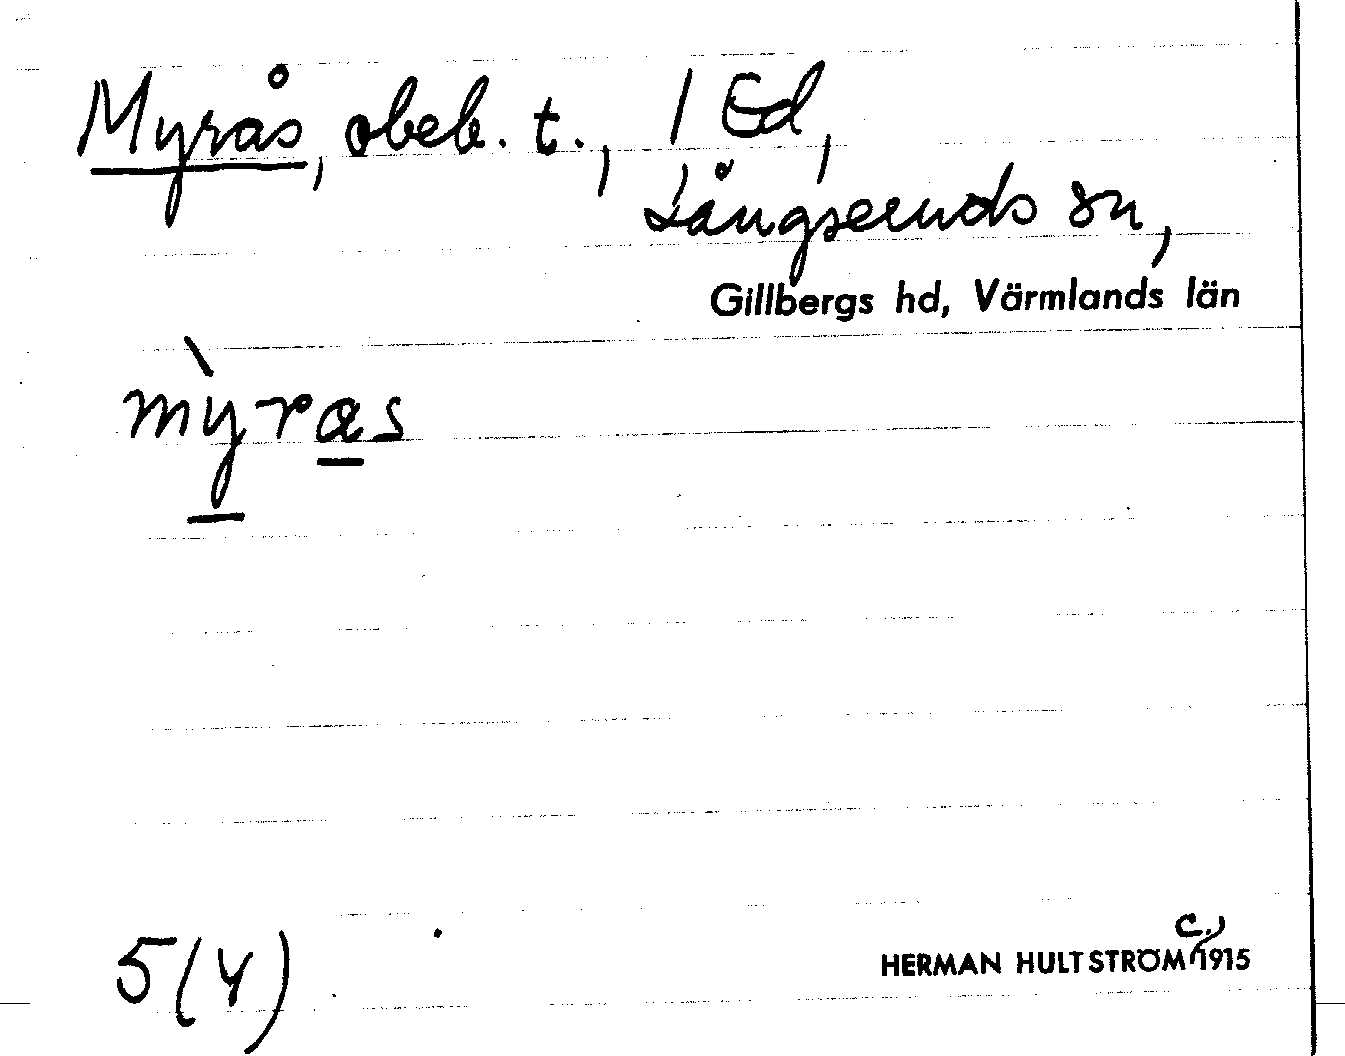 Myrås, obeb. t., 1 Ed,
Långseruds sn,
Gillbergs hd, Värmlands län
mỳras
5(4)
HERMAN HULTSTRÖM c. 1915